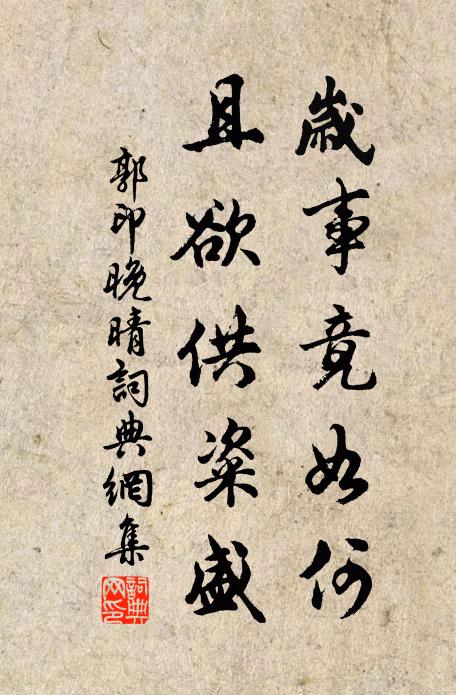 歲事竟如何
且欲供粢盛
郭印晚晴詞典網集
詞典网印